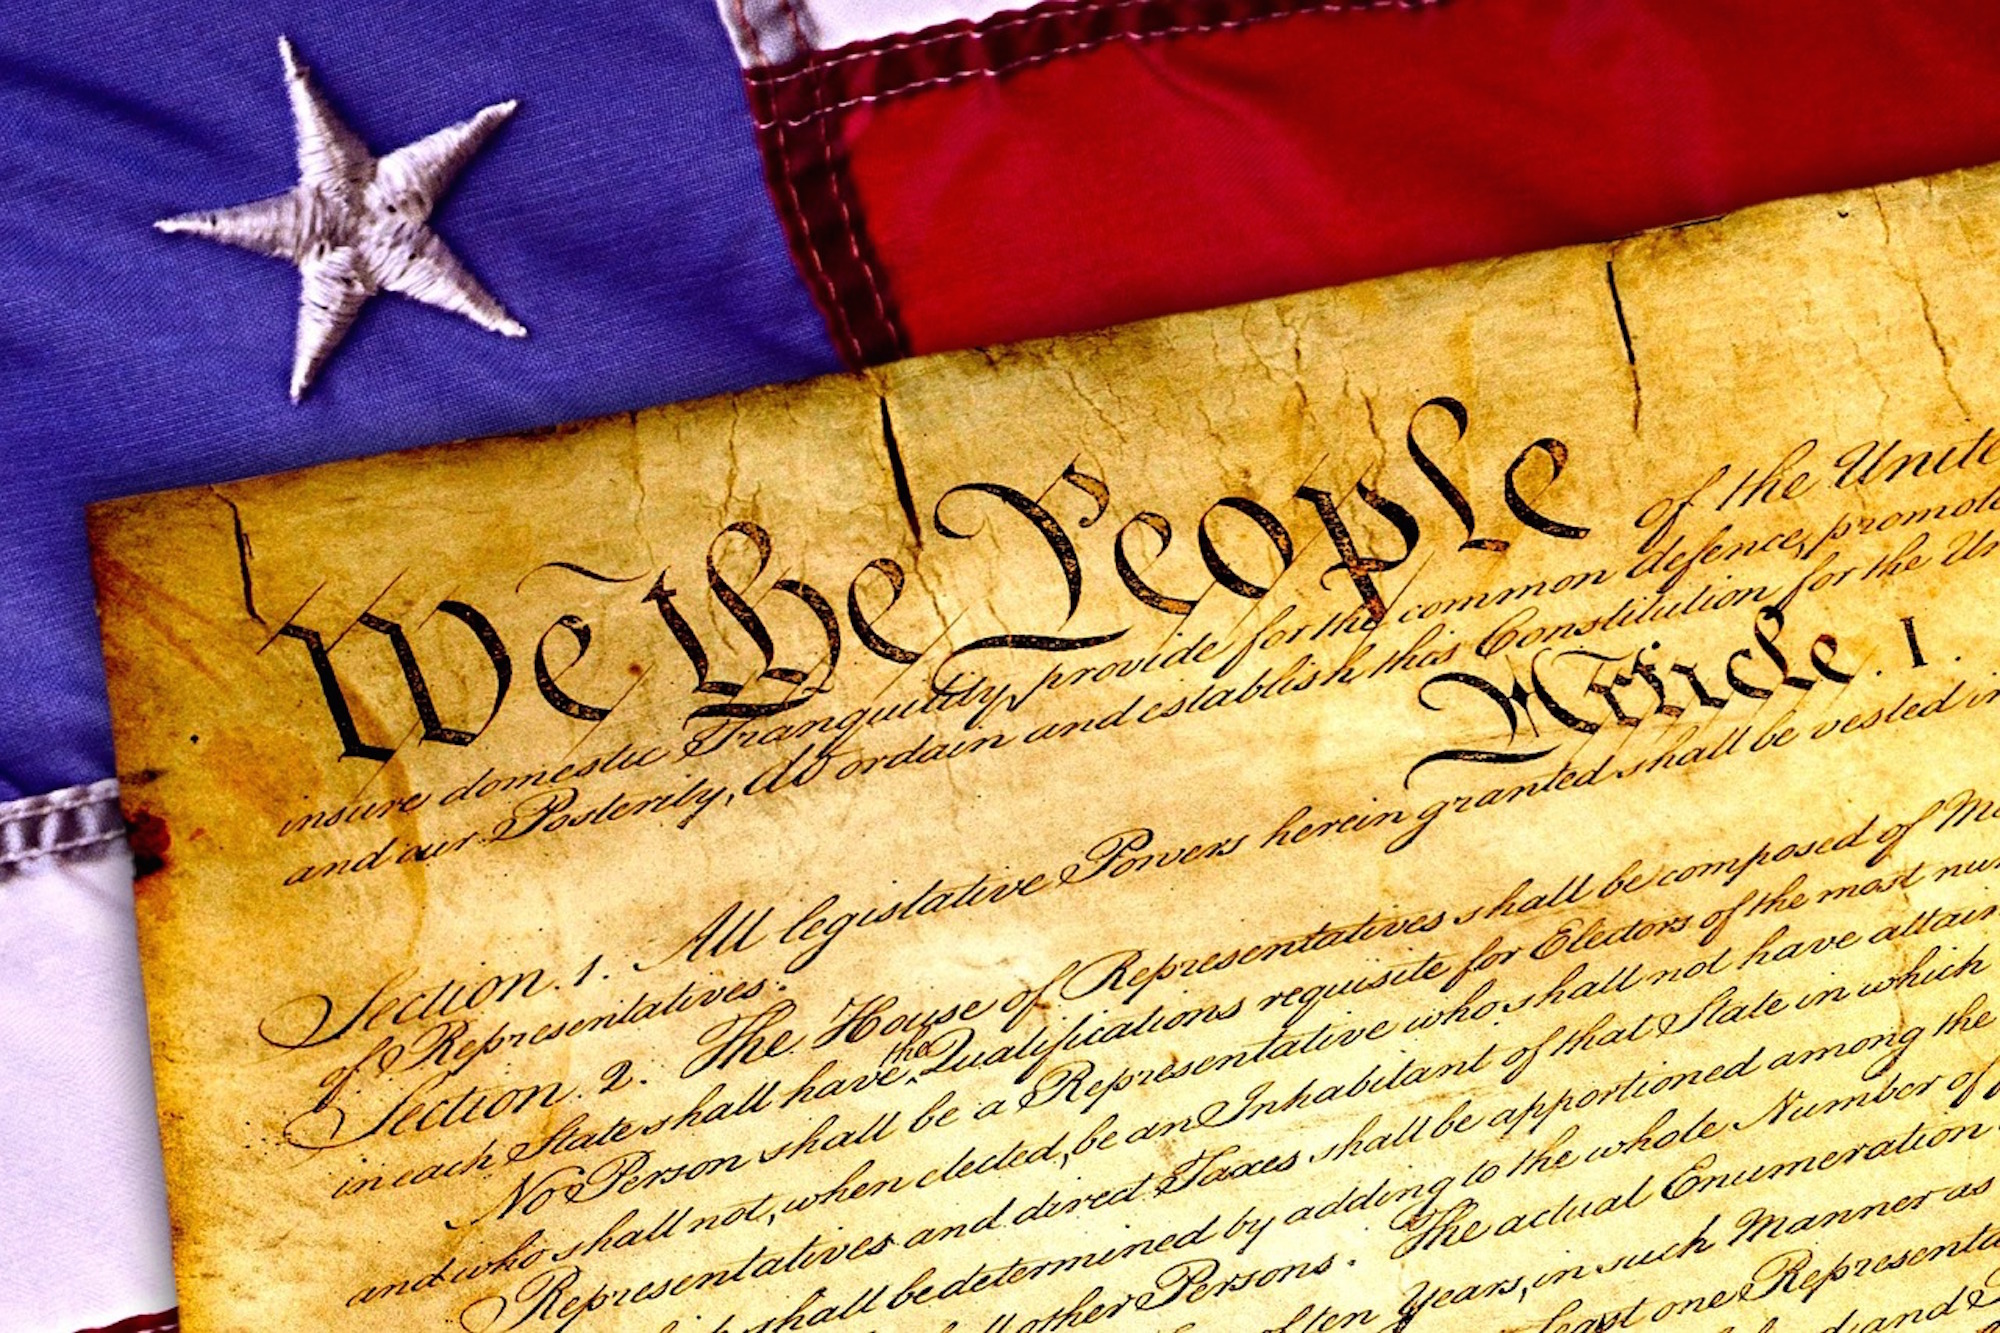 We the People of the Unite
insure domestic Tranquility, provide for the common defence, promote
and our Posterity, do ordain and establish this Constitution for the Un
Article. I.
Section. 1. All legislative Powers herein granted shall be vested in
of Representatives.
Section. 2. The House of Representatives shall be composed of Me
in each State shall have the Qualifications requisite for Electors of the most num
No Person shall be a Representative who shall not have attain
and who shall not, when elected, be an Inhabitant of that State in which
Representatives and direct Taxes shall be apportioned among the
shall be determined by adding to the whole Number of
other Persons. The actual Enumeration
of ten Years, in such Manner as
Least one Representa
and